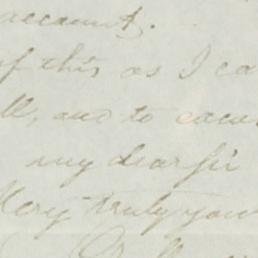 account.
of this as I ca
ll, and to
my dear sir
Very truly your